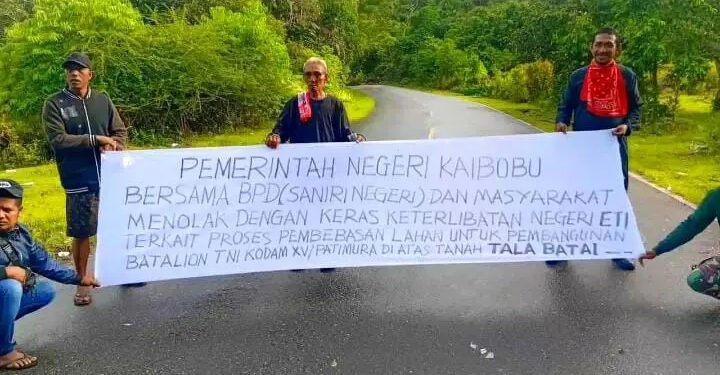 PEMERINTAH NEGERI KAIBOBU
BERSAMA BPD(SANIRI NEGERI) DAN MASYARAKAT
MENOLAK DENGAN KERAS KETERLIBATAN NEGERI ETI
TERKAIT PROSES PEMBEBASAN LAHAN UNTUK PEMBANGUNAN
BATALION TNI KODAM XV/PATIMURA DI ATAS TANAH TALA BATAI